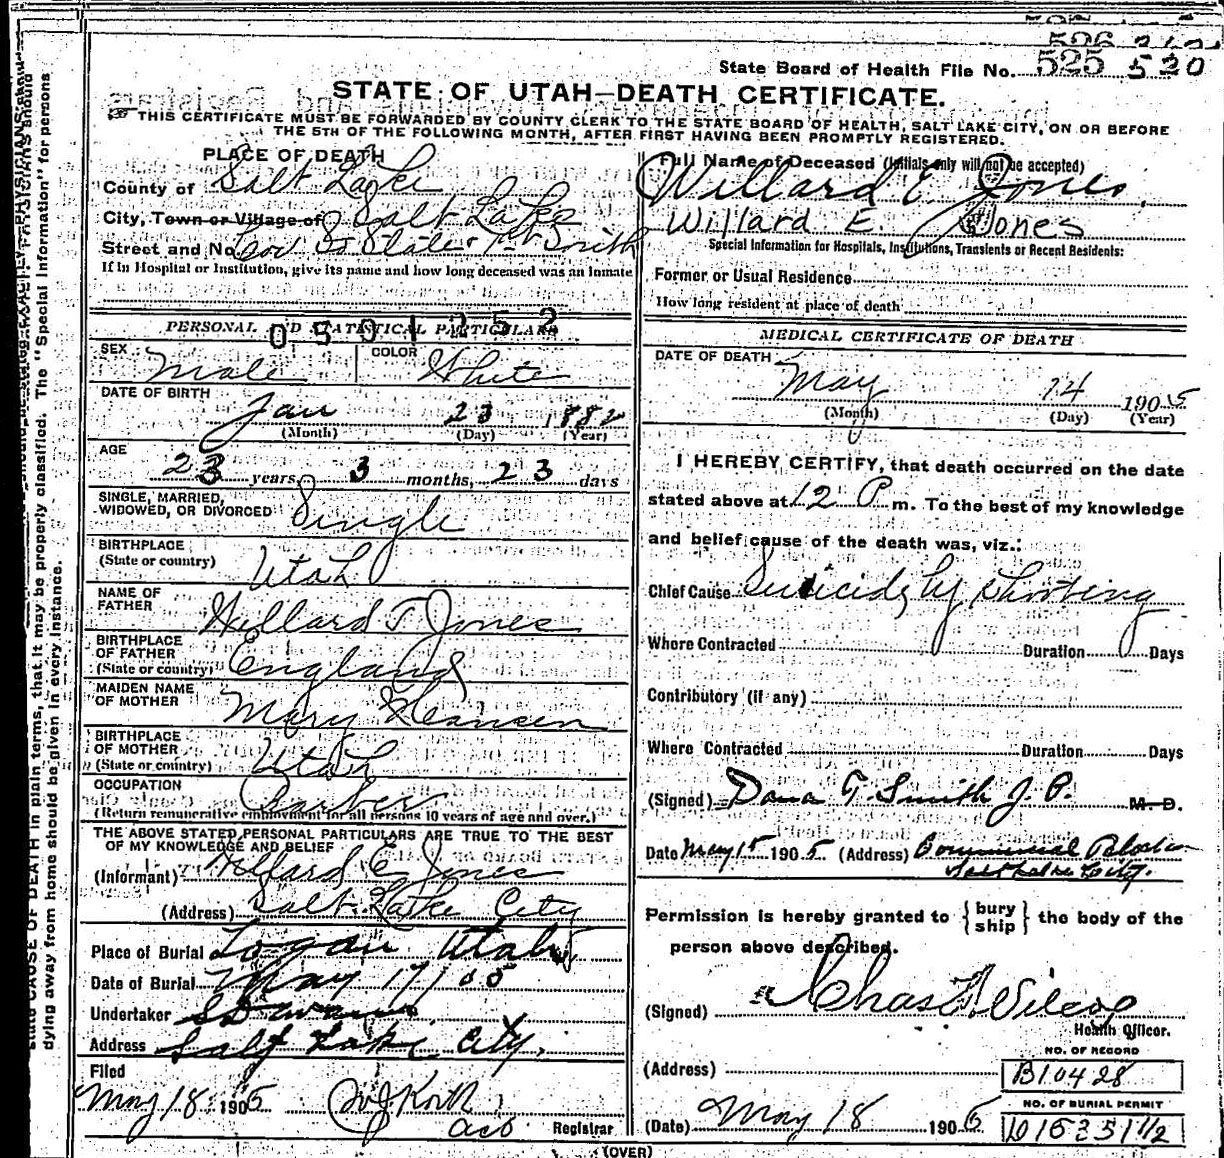 State Board of Health File No. 525 520
STATE OF UTAH—DEATH CERTIFICATE.
THIS CERTIFICATE MUST BE FORWARDED BY COUNTY CLERK TO THE STATE BOARD OF HEALTH, SALT LAKE CITY, ON OR BEFORE
THE 5TH OF THE FOLLOWING MONTH, AFTER FIRST HAVING BEEN PROMPTLY REGISTERED.
PLACE OF DEATH
County of Salt Lake
City, Town or Village of Salt Lake
Street and No. So State
If in Hospital or Institution, give its name and how long deceased was an inmate
PERSONAL AND STATISTICAL PARTICULARS
0501252
SEX Male COLOR White
DATE OF BIRTH
Jan 23 1882
(Month) (Day) (Year)
AGE
23 years, 3 months, 23 days
SINGLE, MARRIED,
WIDOWED, OR DIVORCED Single
BIRTHPLACE
(State or country) Utah
NAME OF
FATHER Willard T Jones
BIRTHPLACE
OF FATHER
(State or country) England
MAIDEN NAME
OF MOTHER Mary
BIRTHPLACE
OF MOTHER
(State or country) Utah
OCCUPATION Barber
(Return remunerative employment for all persons 10 years of age and over.)
THE ABOVE STATED PERSONAL PARTICULARS ARE TRUE TO THE BEST
OF MY KNOWLEDGE AND BELIEF
(Informant) Willard E Jones
(Address) Salt Lake City
Place of Burial Logan Utah
Date of Burial May 17/05
Undertaker
Address Salt Lake City.
Filed
May 18 1905
Registrar
Full Name of Deceased (Initials only will not be accepted)
Willard E. Jones.
Willard E. Jones
Special Information for Hospitals, Institutions, Transients or Recent Residents:
Former or Usual Residence
How long resident at place of death
MEDICAL CERTIFICATE OF DEATH
DATE OF DEATH
May 14 1905
(Month) (Day) (Year)
I HEREBY CERTIFY, that death occurred on the date
stated above at 12 P m. To the best of my knowledge
and belief cause of the death was, viz.:
Chief Cause Suicide by shooting
Where Contracted Duration Days
Contributory (if any)
Where Contracted Duration Days
(Signed) Dana T Smith J. P. M. D.
Date May 15 1905 (Address)
Salt Lake City.
Permission is hereby granted to {bury ship} the body of the
person above described.
(Signed) Chas F Wilcox
Health Officer.
(Address)
NO. OF RECORD
B10428
NO. OF BURIAL PERMIT
(Date) May 18 1905
(OVER)
dying away from home should be given in every instance.
state CAUSE OF DEATH in plain terms, that it may be properly classified. The "Special Information" for persons